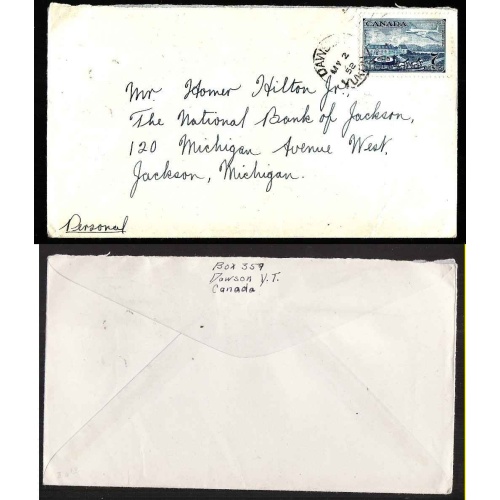 CANADA
7
DAWSON
MY 2
52
YUKON
Mr Homer Hilton Jr.,
The National Bank of Jackson,
120 Michigan Avenue West.
Jackson, Michigan.
Personal
Box 359
Dawson Y.T.
Canada